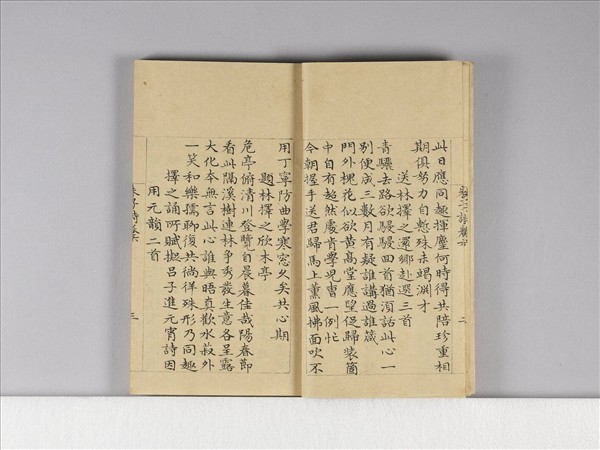 此日應同趣揮麈何時得共陪珍重相
期俱努力自慙殊未竭涓才
送林擇之還鄉赴選三首
青驪去路欲駸駸回首猶須話此心一
別便成三數月有疑誰講過誰箴
門外槐花似欲黃高堂應望促歸裝箇
中自有超然處肯學兒曹一例忙
今朝握手送君歸馬上薰風拂面吹不
二
用丁寧防曲學寒窓久矣共心期
題林擇之欣木亭
危亭俯清川登覽自晨暮佳哉陽春節
看此隔溪樹連林爭秀發生意各呈露
大化本無言此心誰與晤真歡水菽外
一笑和樂孺聊復共徜徉殊形乃同趣
擇之誦所賦擬呂子進元宵詩因
用元韻二首
三